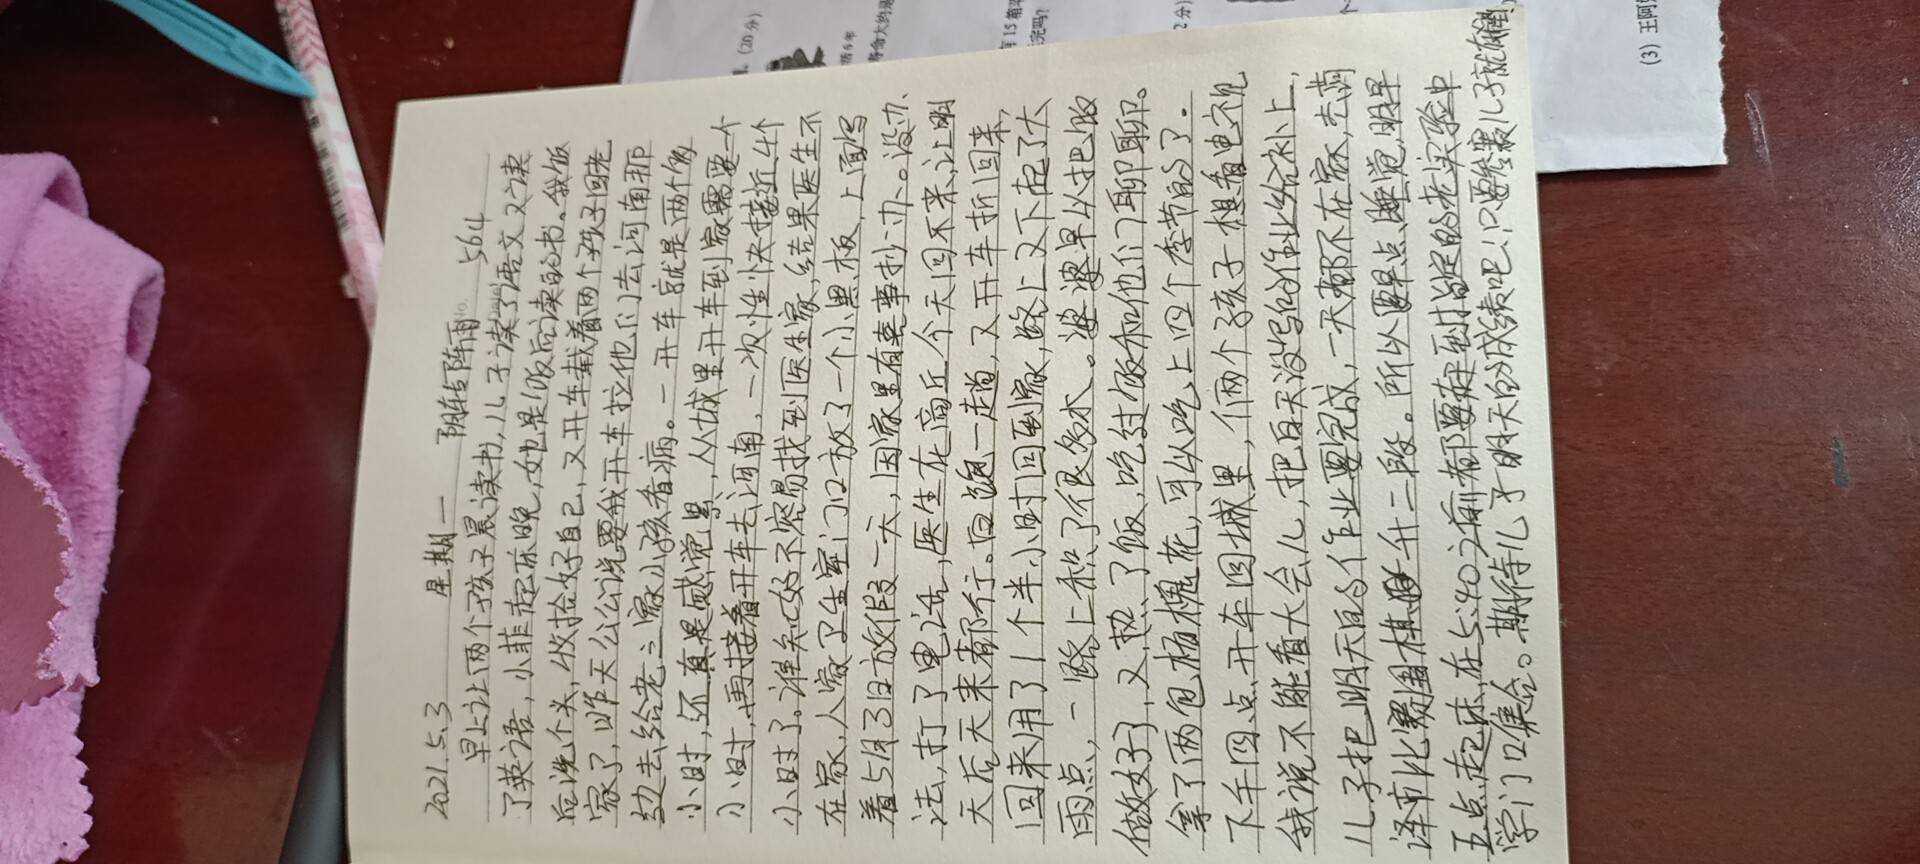 2021.5.3 星期一 阴转阵雨 564
早上让两个孩子晨读书,儿子读了语文又读
了英语,小菲起床晚,她是饭后读的书。我饭
后洗个头,收拾好自己,又开车载着两个孩子回老
家了,昨天公公说要我开车拉他们去河南那
边去给老三家小孩看病。一开车就是两个多
小时,还真是感觉累,从城里开车到家需要一个
小时,再接着开车去河南,一次性快接近4个
小时了。谁知好不容易找到医生家,结果医生不
在家,人家卫生室门口放了一个小黑板,上面写
着5月3日放假一天,因家里有喜事扎办。没办
法,打了电话,医生在商丘今天回不来,让明
天后天来都行。白跑一趟,又开车折回来,
回来用了1个半小时回到家,路上又下起了大
雨点,一路上积了很多水。婆婆早以把饭
做好了,又热了饭,吃过饭和他们聊聊。
拿了两包杨槐花,可以吃上四个季节的了.
下午四点开车回城里,俩两个孩子想看电视
我说不能看大会儿,把白天没写的作业给补上,
儿子把明天的作业要完成,一天都不在家,去菏
泽市比赛围棋升二段。所以要早点睡觉,明早
五点起床,在5:40之前都要赶到指定的老实验中
学门口集合。期待儿子明天的成绩吧!只要经赛儿子就有
(20分)
活6年
寿命大约是
有15箱
完吗?
2分)
(3) 王阿